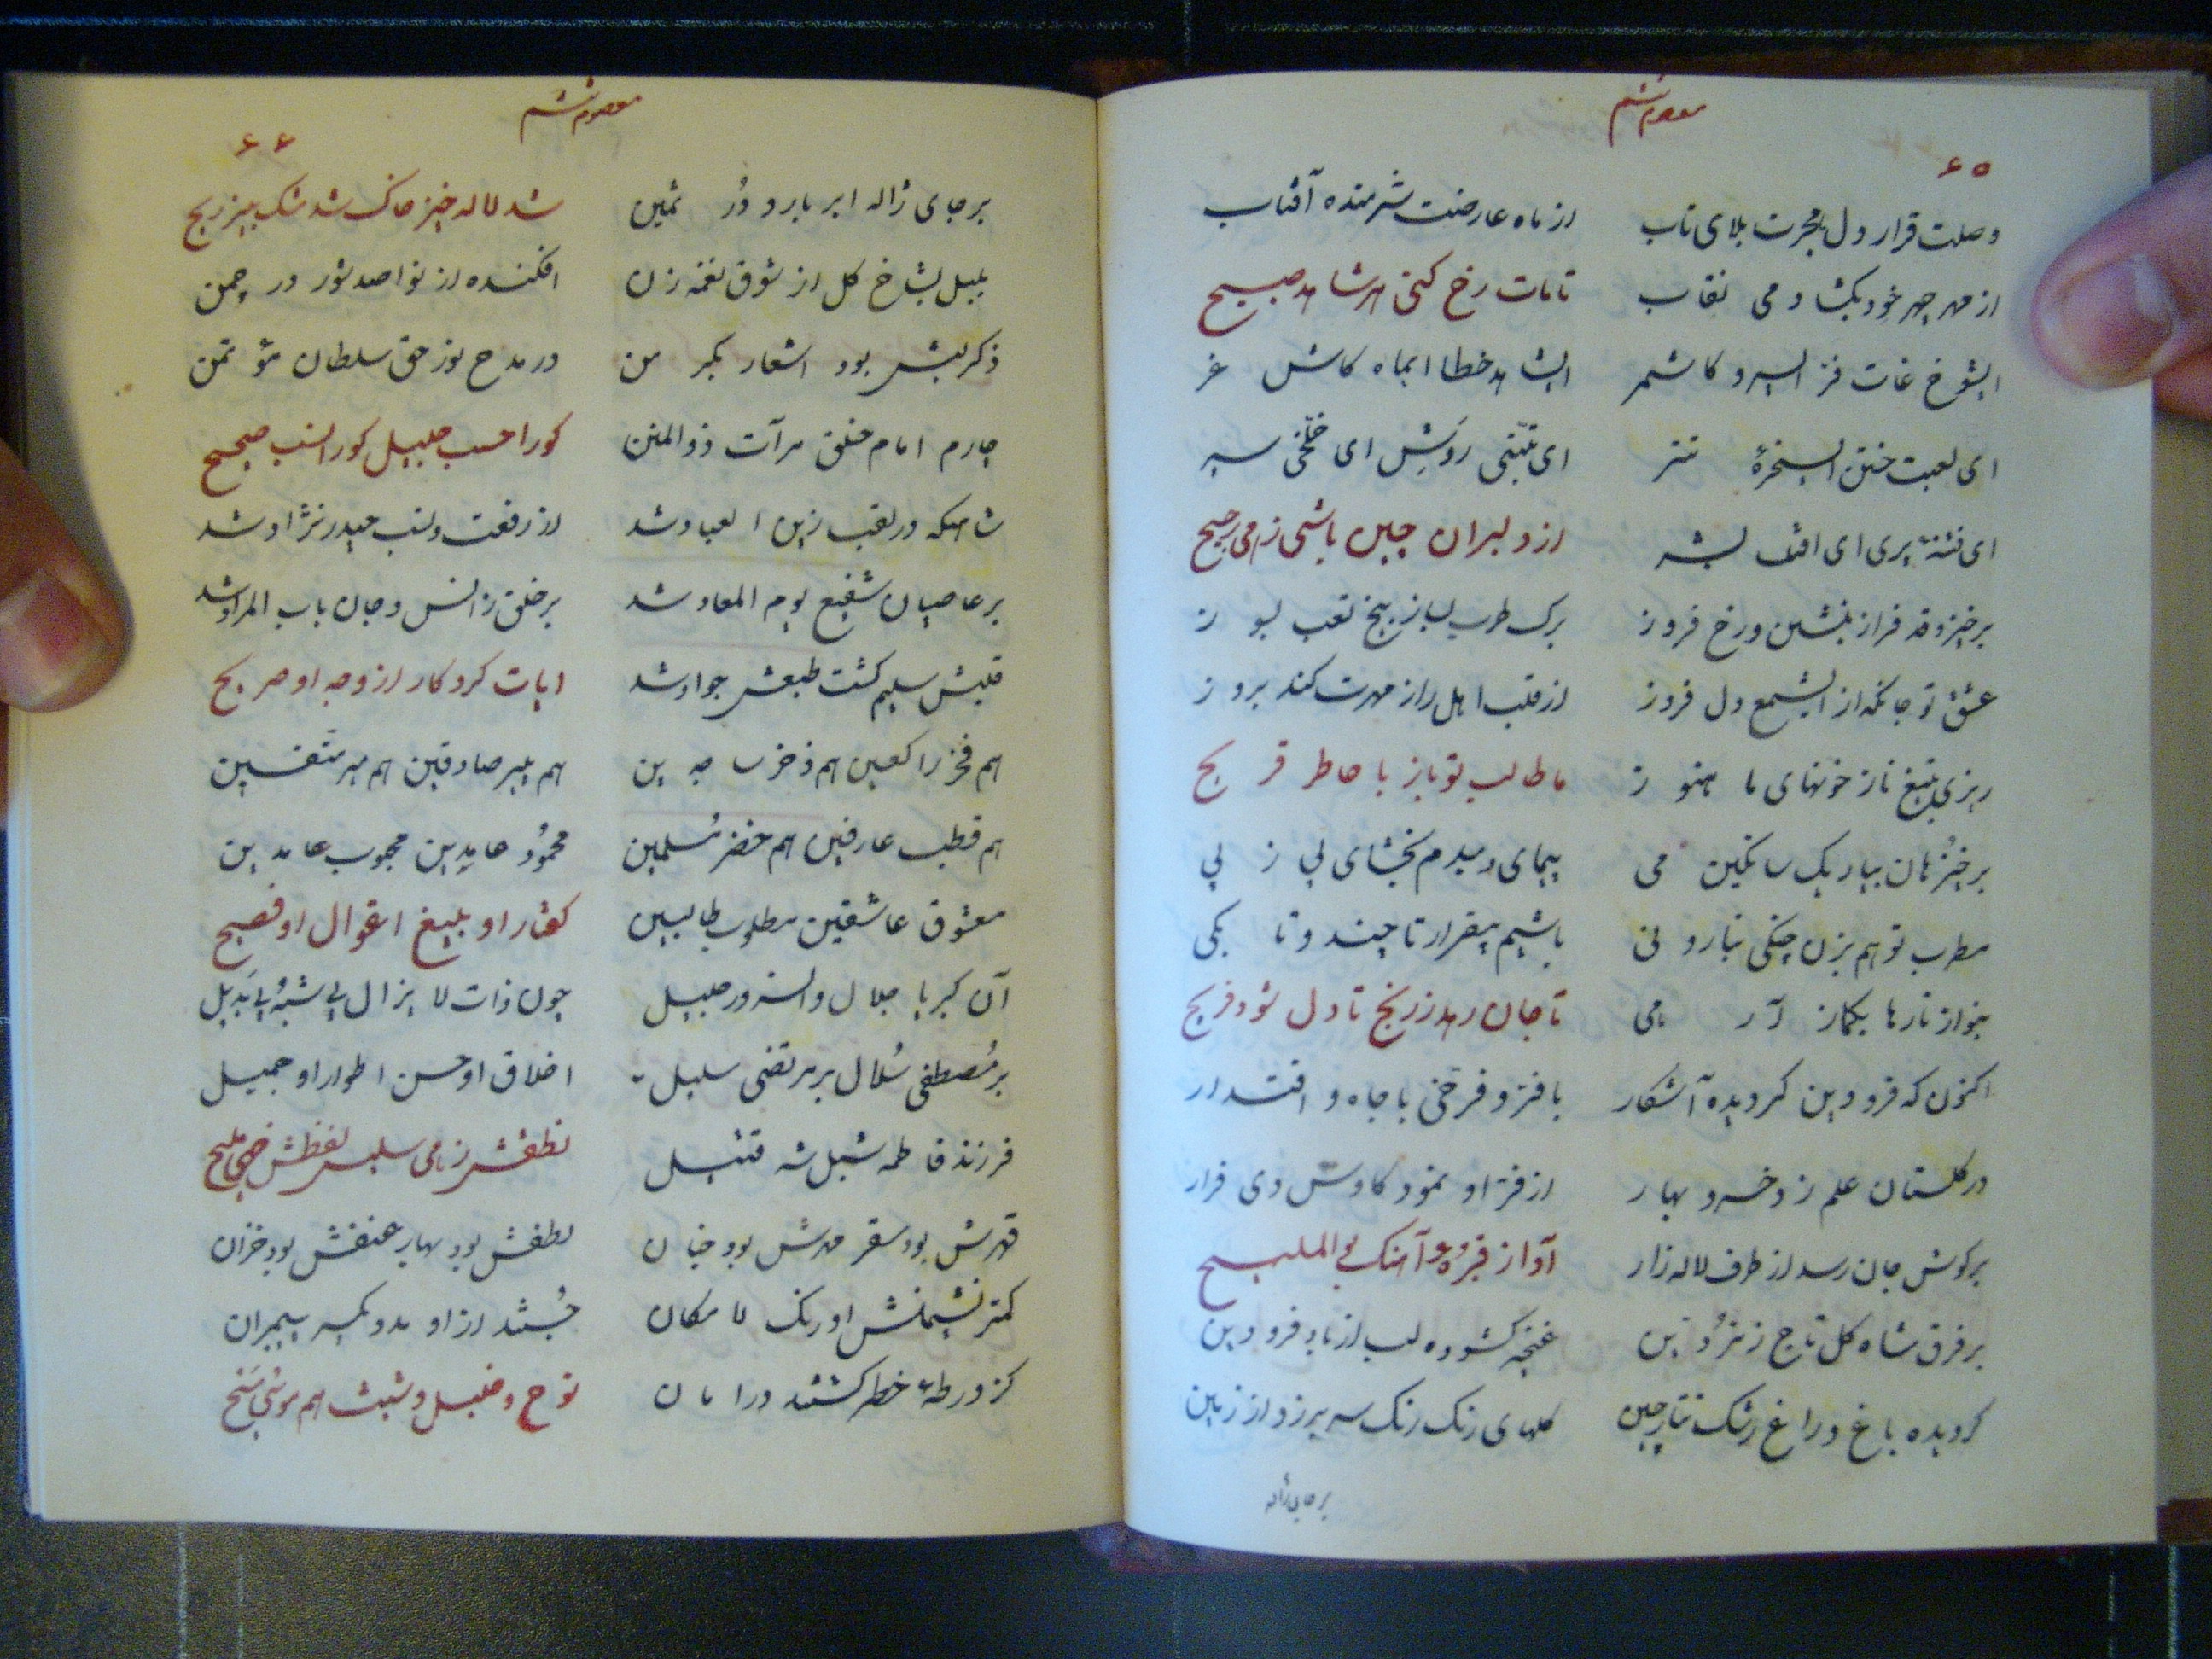 معصوم ششم
۶۵
وصلت قرار دل هجرت بلای تاب از ماه عارضت شرمنده آفتاب
از مهر چهر خود بگشا دمی نقاب تا مات رخ کنی هر شاهد صبیح
ایشوخ غات فر ایسرو کاشمر ایشاهد خطا ایماه کاش غر
ای لعبت ختن ایسخرهٔ تتر ای تبتی روش ای خلّخی سیر
ای فتنهٔ پری ای افت بشر از دلبران چین باشی ز می رجیح
برخیز و قد فراز بنشین و رخ فروز برک طرب بساز بیخ تعب بسوز
عشق تو جانکداز ایشمع دل فروز از قلب اهل راز مهرت کند بروز
ریزی بتیغ ناز خونهای ما هنوز ما طالب تو باز با خاطر قریح
برخیز هان بیار یک ساتکین می پیمای دمبدم بخشای پی ز پی
مطرب تو هم بزن چنکی بتار و نی باشیم بیقرار تا چند و تا بکی
بنواز تارها بکماز آر هی تا جان رهد ز رنج تا دل شود فریح
اکنون که فرودین کردیده آشکار با فتر و فرخی با جاه و اقتدار
در کلستان علم زد خسرو بهار از فرّ او نمود کاوس دی فرار
بر کوش جان رسد از طرف لاله زار آواز قبّره و آهنک بو الملیح
بر فرق شاه کل تاج زمرّدین غنچه کشوده لب از باد فرودین
کردیده باغ و راغ رشک تتار چین کلهای رنک رنک سر برزد از زمین
برجای ژاله
معصوم ششم
۶۶
بر جای ژاله ابر بارد دُر ثمین شد لاله خیز خاک شد مشک بیز ریح
بلبل بشاخ کل از شوق نغمه زن افکنده از نوا صد شور در چمن
ذکر لبش بود اشعار بکر من در مدح نور حق سلطان مؤتمن
چارم امام خلق مرآت ذوالمنن کورا حسب جلیل کورا نسب صحیح
شاهیکه در لقب زین العباد شد از رفعت و نسب حیدر نژاد شد
بر عاصیان شفیع یوم المعاد شد بر خلق ز انس و جان باب المراد شد
قلبش سلیم کشت طبعش جواد شد ایات کردکار از وجه او صریح
هم فخر راکعین هم ذخر ساجدین هم پیر صادقین هم میر متقین
هم قطب عارفین هم خضر مُسلمین محمُود حامدین محبوب عابدین
معشوق عاشقین مطلوب طالبین کفتار او بلیغ اقوال او فصیح
آن کبریا جلال و انسرور جلیل چون ذات لا یزال بی شبهُ بی بَدیل
بر مُصطفی سُلال بر مرتضی سلیل اخلاق او حسن اطوار او جمیل
فرزند فاطمه شبل شه قتیل نطقش ز می سلیس لفظش خهی ملیح
قهرش بود سقر مهرش بود جنان لطفش بود بهار عنفش بود خزان
کمتر نشیمنش اورنک لا مکان جُستند از او مدد یکسر پیمبران
کز ورطهٔ خطر کشتند در امان نوح و خلیل و شیث هم موسُی مَسیح